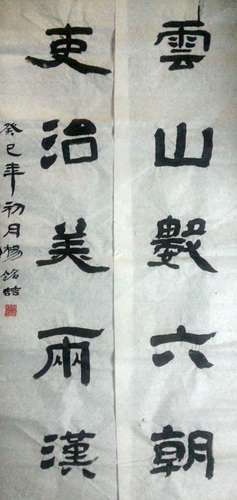 雲山數六朝
吏治美兩漢
癸巳年初月楊